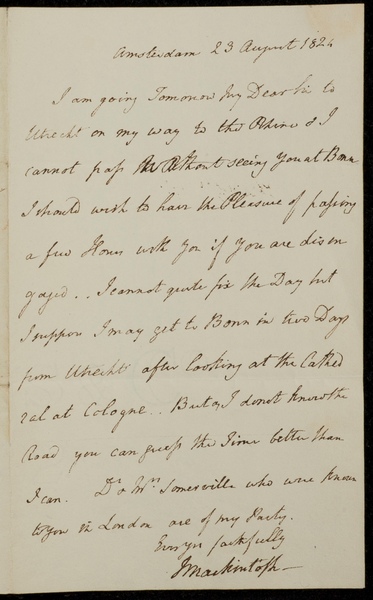 Amsterdam 23 August 1824
I am going Tomorrow My Dear Sir to
Utrecht on my way to the Rhine & I
cannot pass without seeing You at Bonn
I should wish to have the Pleasure of passing
a few Hours with You if You are disen
gaged .. I cannot quite fix the Day but
I suppose I may get to Bonn in two Days
from Utrecht after looking at the Cathed
ral at Cologne .. But as I do not know the
Road you can guess the Time better than
I can. Dr & Mrs Somerville who were known
to You in London are of my Party.
Ever yrs faithfully
J Mackintosh